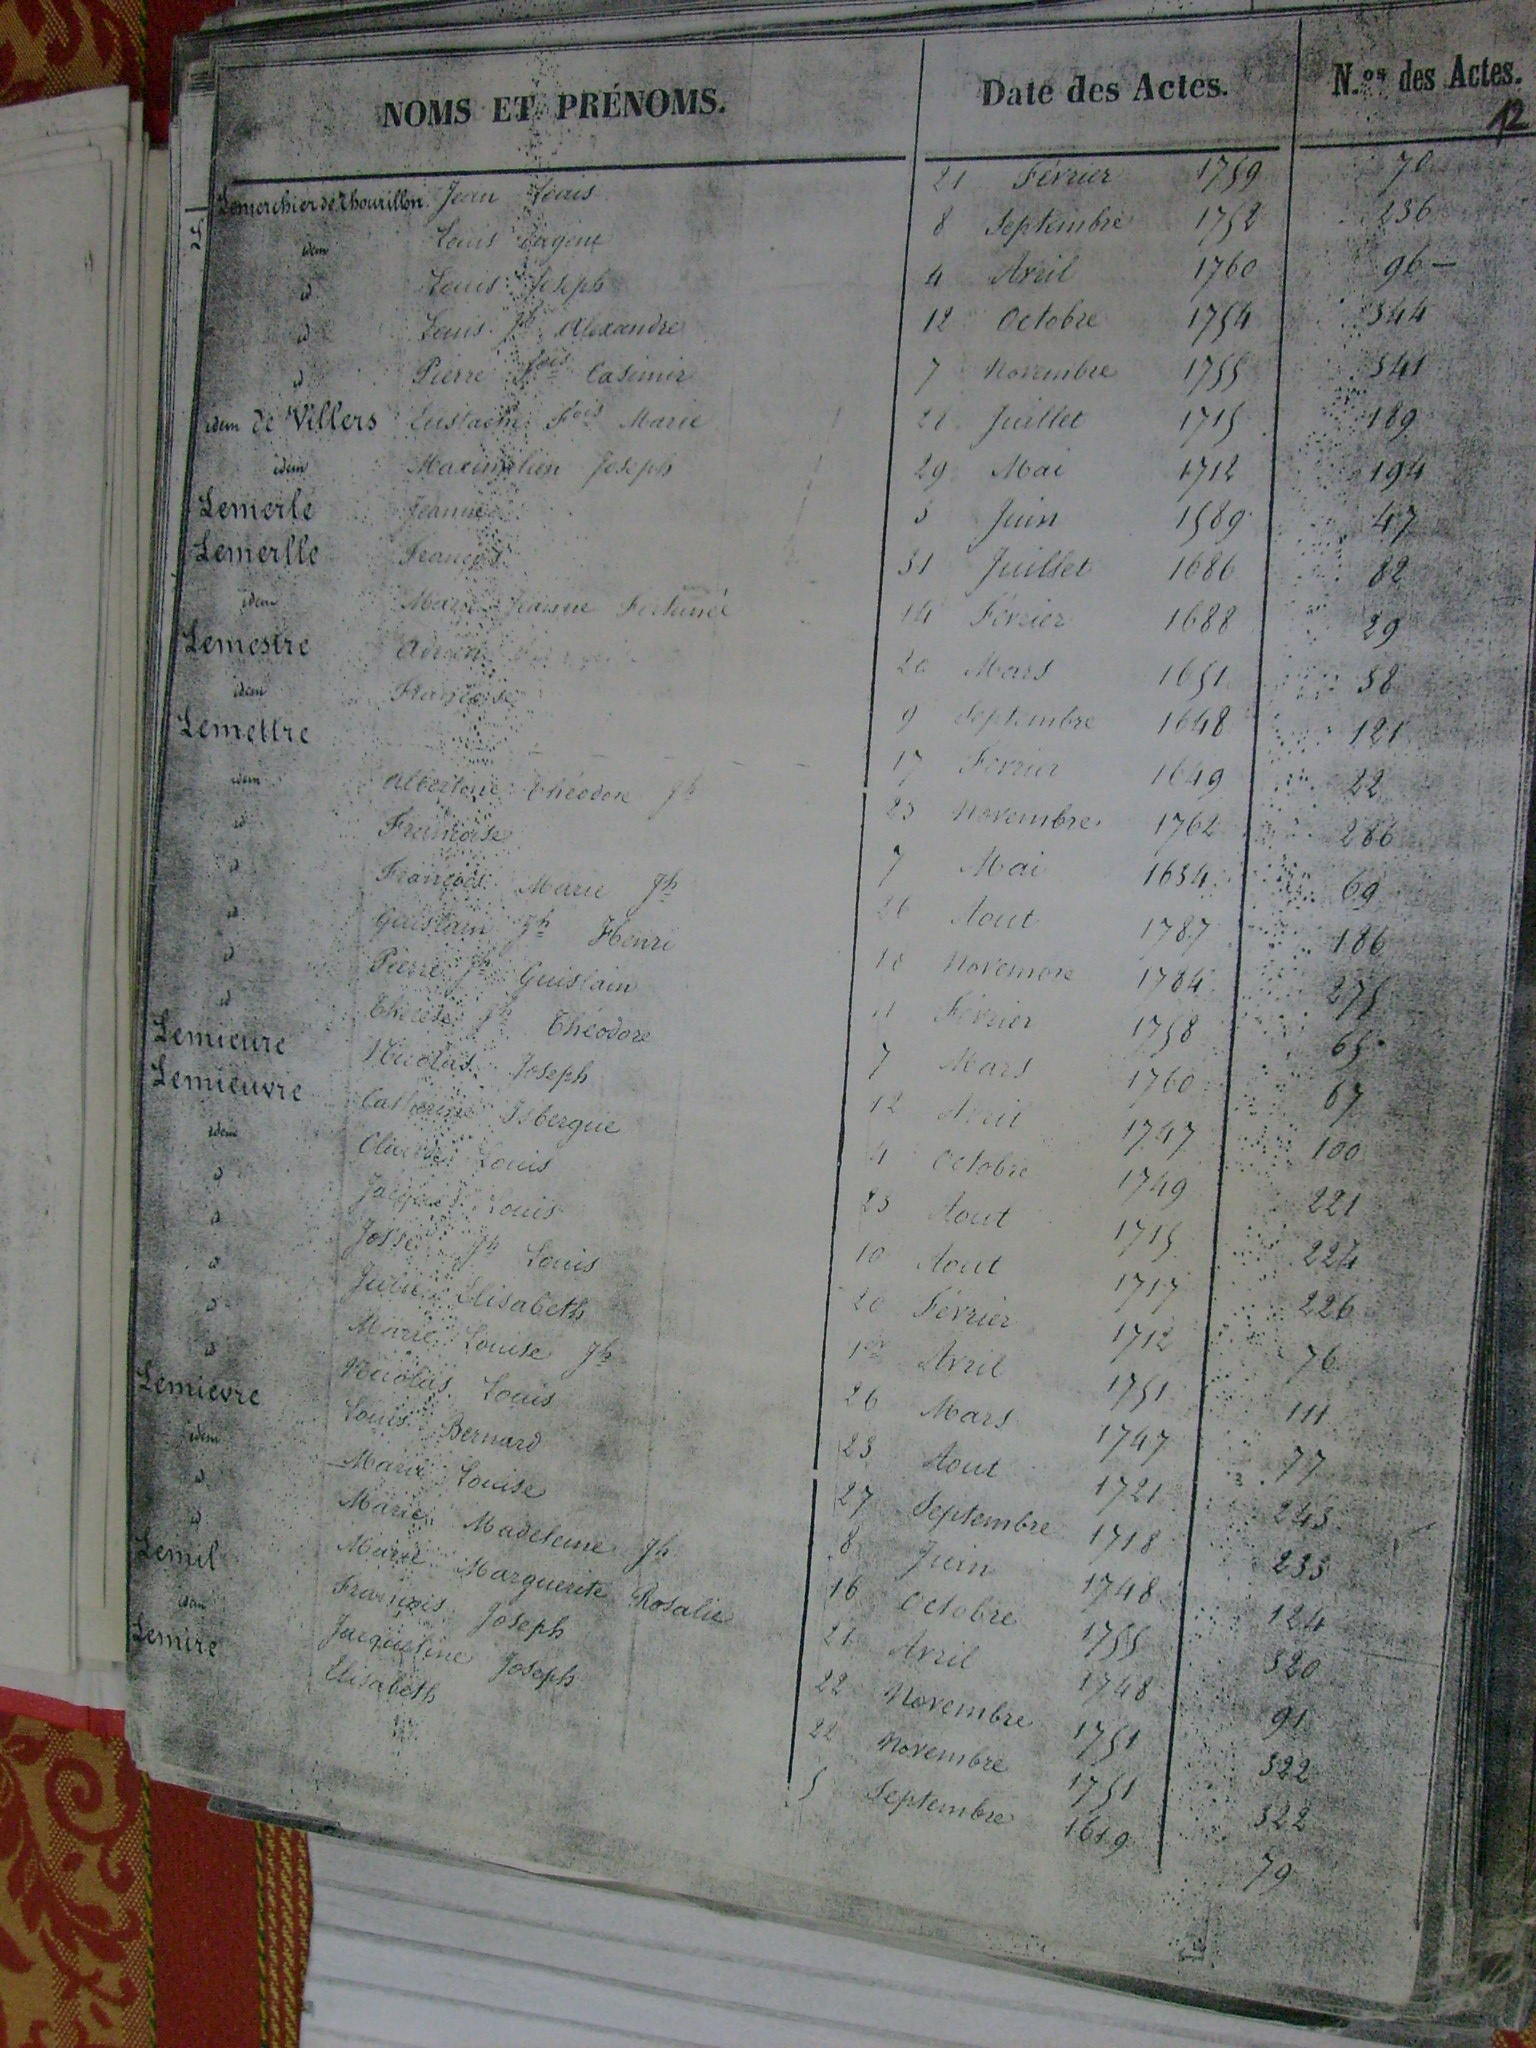 NOMS ET PRÉNOMS. Date des Actes. N.os des Actes.
12
Lemerchier de Thourillon Jean Louis 21 Février 1759 70
idem Louis Eugene 8 Septembre 1752 236
id Louis Joseph 4 Avril 1760 96 —
id Louis Jh Alexandre 12 Octobre 1754 344
id Pierre Fois Casimir 7 Novembre 1755 341
idem de Villers Eustache Fois Marie 21 Juillet 1715 189
idem Maximilien Joseph 29 Mai 1712 194
Lemerle Jeanne 3 Juin 1589 47
Lemerlle François 31 Juillet 1686 82
idem Marie Jeanne Fortunée 14 Février 1688 29
Lemestre Adrien 20 Mars 1651 38
idem Françoise 9 Septembre 1648 121
Lemettre 17 Février 1649 22
idem Albertine Théodore Jh 23 Novembre 1762 286
id Françoise 7 Mai 1634 69
id François Marie Jh 26 Aout 1787 186
id Guislain Jh Henri 18 Novembre 1784 275
id Pierre Jh Guislain 11 Février 1758 65
id Thérèse Jh Théodore 7 Mars 1760 67
Lemieure Nicolas Joseph 12 Avril 1747 100
Lemieuvre Catherine Isbergue 4 Octobre 1749 221
idem Louis 23 Aout 1715 224
id Jacques Louis 10 Aout 1717 226
id Josse Jh Louis 20 Février 1712 76
id Julie Elisabeth 1er Avril 1751 111
id Marie Louise Jh 26 Mars 1747 77
id Nicolas Louis 23 Aout 1721 243
Lemievre Louis Bernard 27 Septembre 1718 233
idem Marie Louise 8 Juin 1748 124
id Marie Madeleine Jh 16 Octobre 1755 320
id Marie Marguerite Rosalie 21 Avril 1748 91
Lemil François Joseph 22 Novembre 1751 322
idem Jacqueline Joseph 22 Novembre 1751 322
Lemire Elisabeth 5 Septembre 1619 79